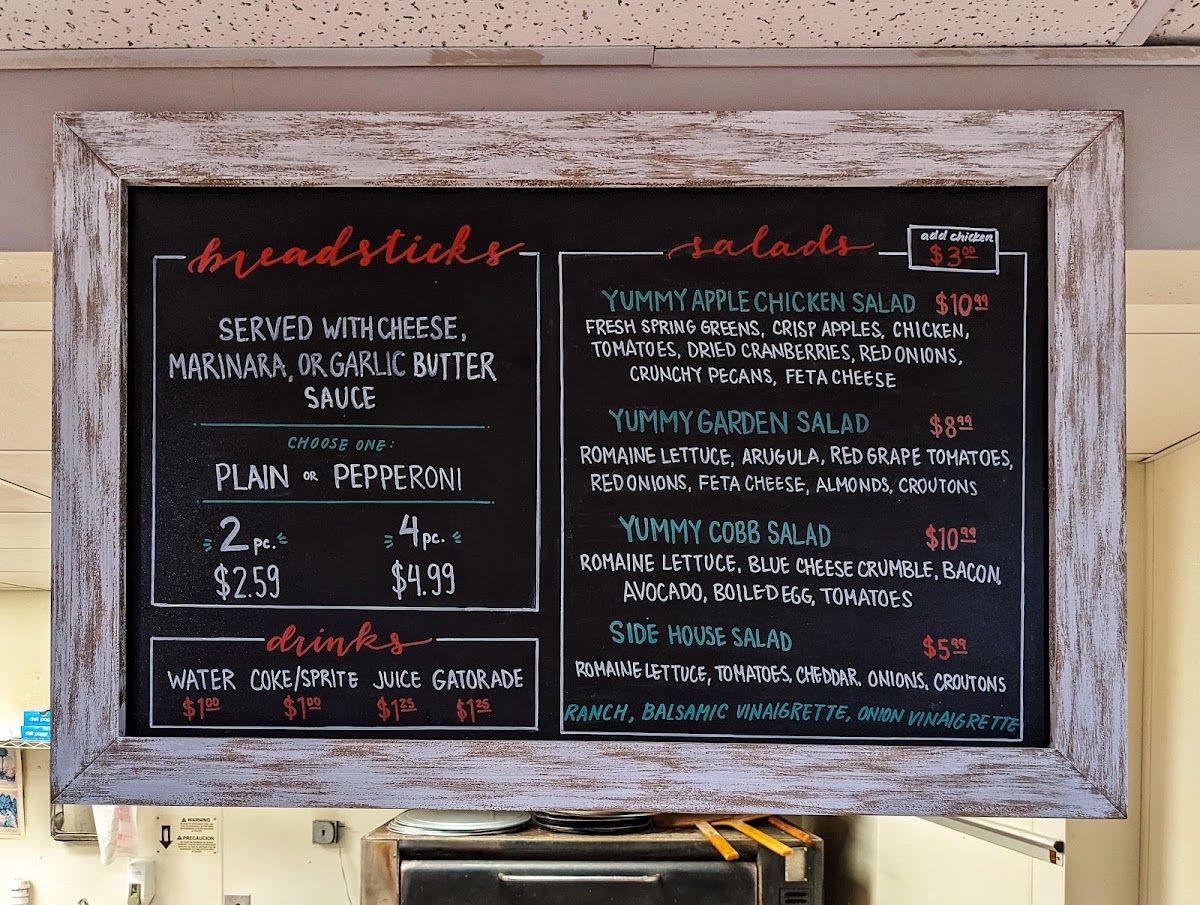 breadsticks
SERVED WITH CHEESE,
MARINARA, OR GARLIC BUTTER
SAUCE
CHOOSE ONE:
PLAIN OR PEPPERONI
2 pc. 4 pc.
$2.59 $4.99
drinks
WATER COKE/SPRITE JUICE GATORADE
$1.00 $1.00 $1.25 $1.25
salads
add chicken
$3.00
YUMMY APPLE CHICKEN SALAD $10.99
FRESH SPRING GREENS, CRISP APPLES, CHICKEN,
TOMATOES, DRIED CRANBERRIES, RED ONIONS,
CRUNCHY PECANS, FETA CHEESE
YUMMY GARDEN SALAD $8.99
ROMAINE LETTUCE, ARUGULA, RED GRAPE TOMATOES,
RED ONIONS, FETA CHEESE, ALMONDS, CROUTONS
YUMMY COBB SALAD $10.99
ROMAINE LETTUCE, BLUE CHEESE CRUMBLE, BACON,
AVOCADO, BOILED EGG, TOMATOES
SIDE HOUSE SALAD $5.99
ROMAINE LETTUCE, TOMATOES, CHEDDAR, ONIONS, CROUTONS
RANCH, BALSAMIC VINAIGRETTE, ONION VINAIGRETTE
WARNING
PRECAUCION